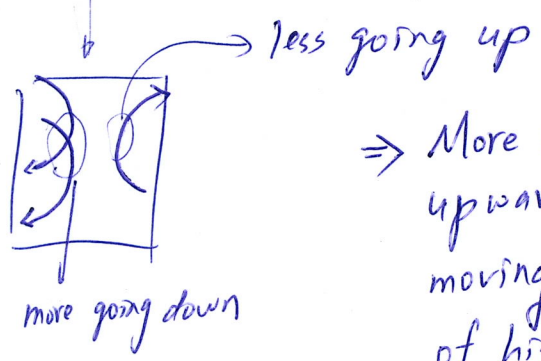 less going up
⇒ More
upwar
moving
of hi
more going down